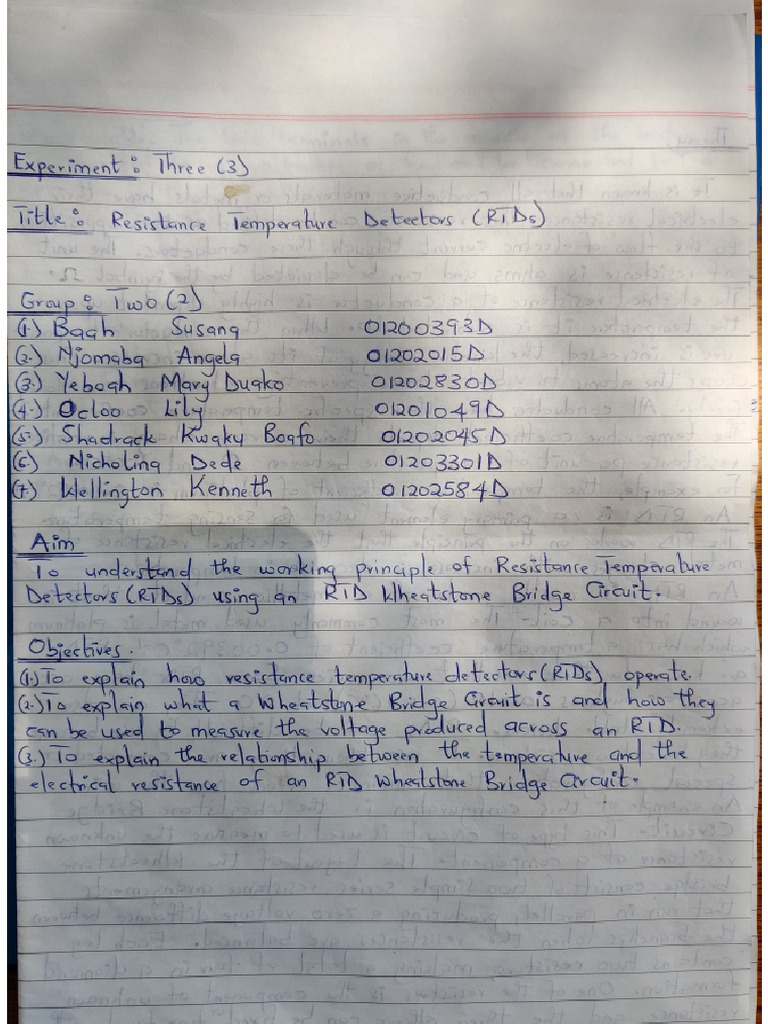 Experiment: Three (3)
Title: Resistance Temperature Detectors (RTDs)
Group: Two (2)
(1.) Baah Susana 01200393D
(2.) Njomaba Angela 01202015D
(3.) Yeboah Mary Duako 01202830D
(4.) Ocloo Lily 01201049D
(5.) Shadrack Kwaku Boafo 01202045D
(6) Nicholina Dede 01203301D
(7.) Wellington Kenneth 01202584D
Aim
To understand the working principle of Resistance Temperature
Detectors (RTDs) using an RTD Wheatstone Bridge Circuit.
Objectives.
(1.) To explain how resistance temperature detectors (RTDs) operate.
(2.) To explain what a Wheatstone Bridge Circuit is and how they
can be used to measure the voltage produced across an RTD.
(3.) To explain the relationship between the temperature and the
electrical resistance of an RTD Wheatstone Bridge Circuit.